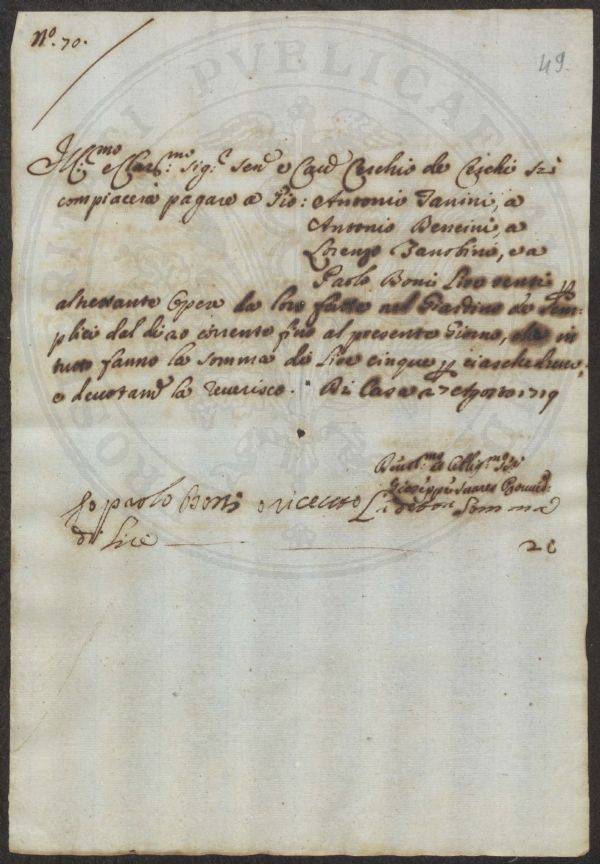 N.º 70.
49.
Ill:mo e Clar:mo Sig:r Sen:e e Cav:e Cerchio de Cerchi si
compiacerà pagare a Gio: Antonio Janini, a
Antonio Bencini, a
Lorenzo Zanobini, e a
Paolo Boni Lire venti p
altrettante Opere da loro fatte nel Giardino de Sem-
plici dal dì 20 corrente fino al presente Giorno, che in
tutto fanno la somma di Lire cinque p ciascheduno,
e devotam:e la reverisco. Di Casa 27 Agosto 1719
Devot:mo et Obblig:mo Ser:
Giuseppe Suares
Io paolo Boni o riceuto La detta Somma
di Lire 20